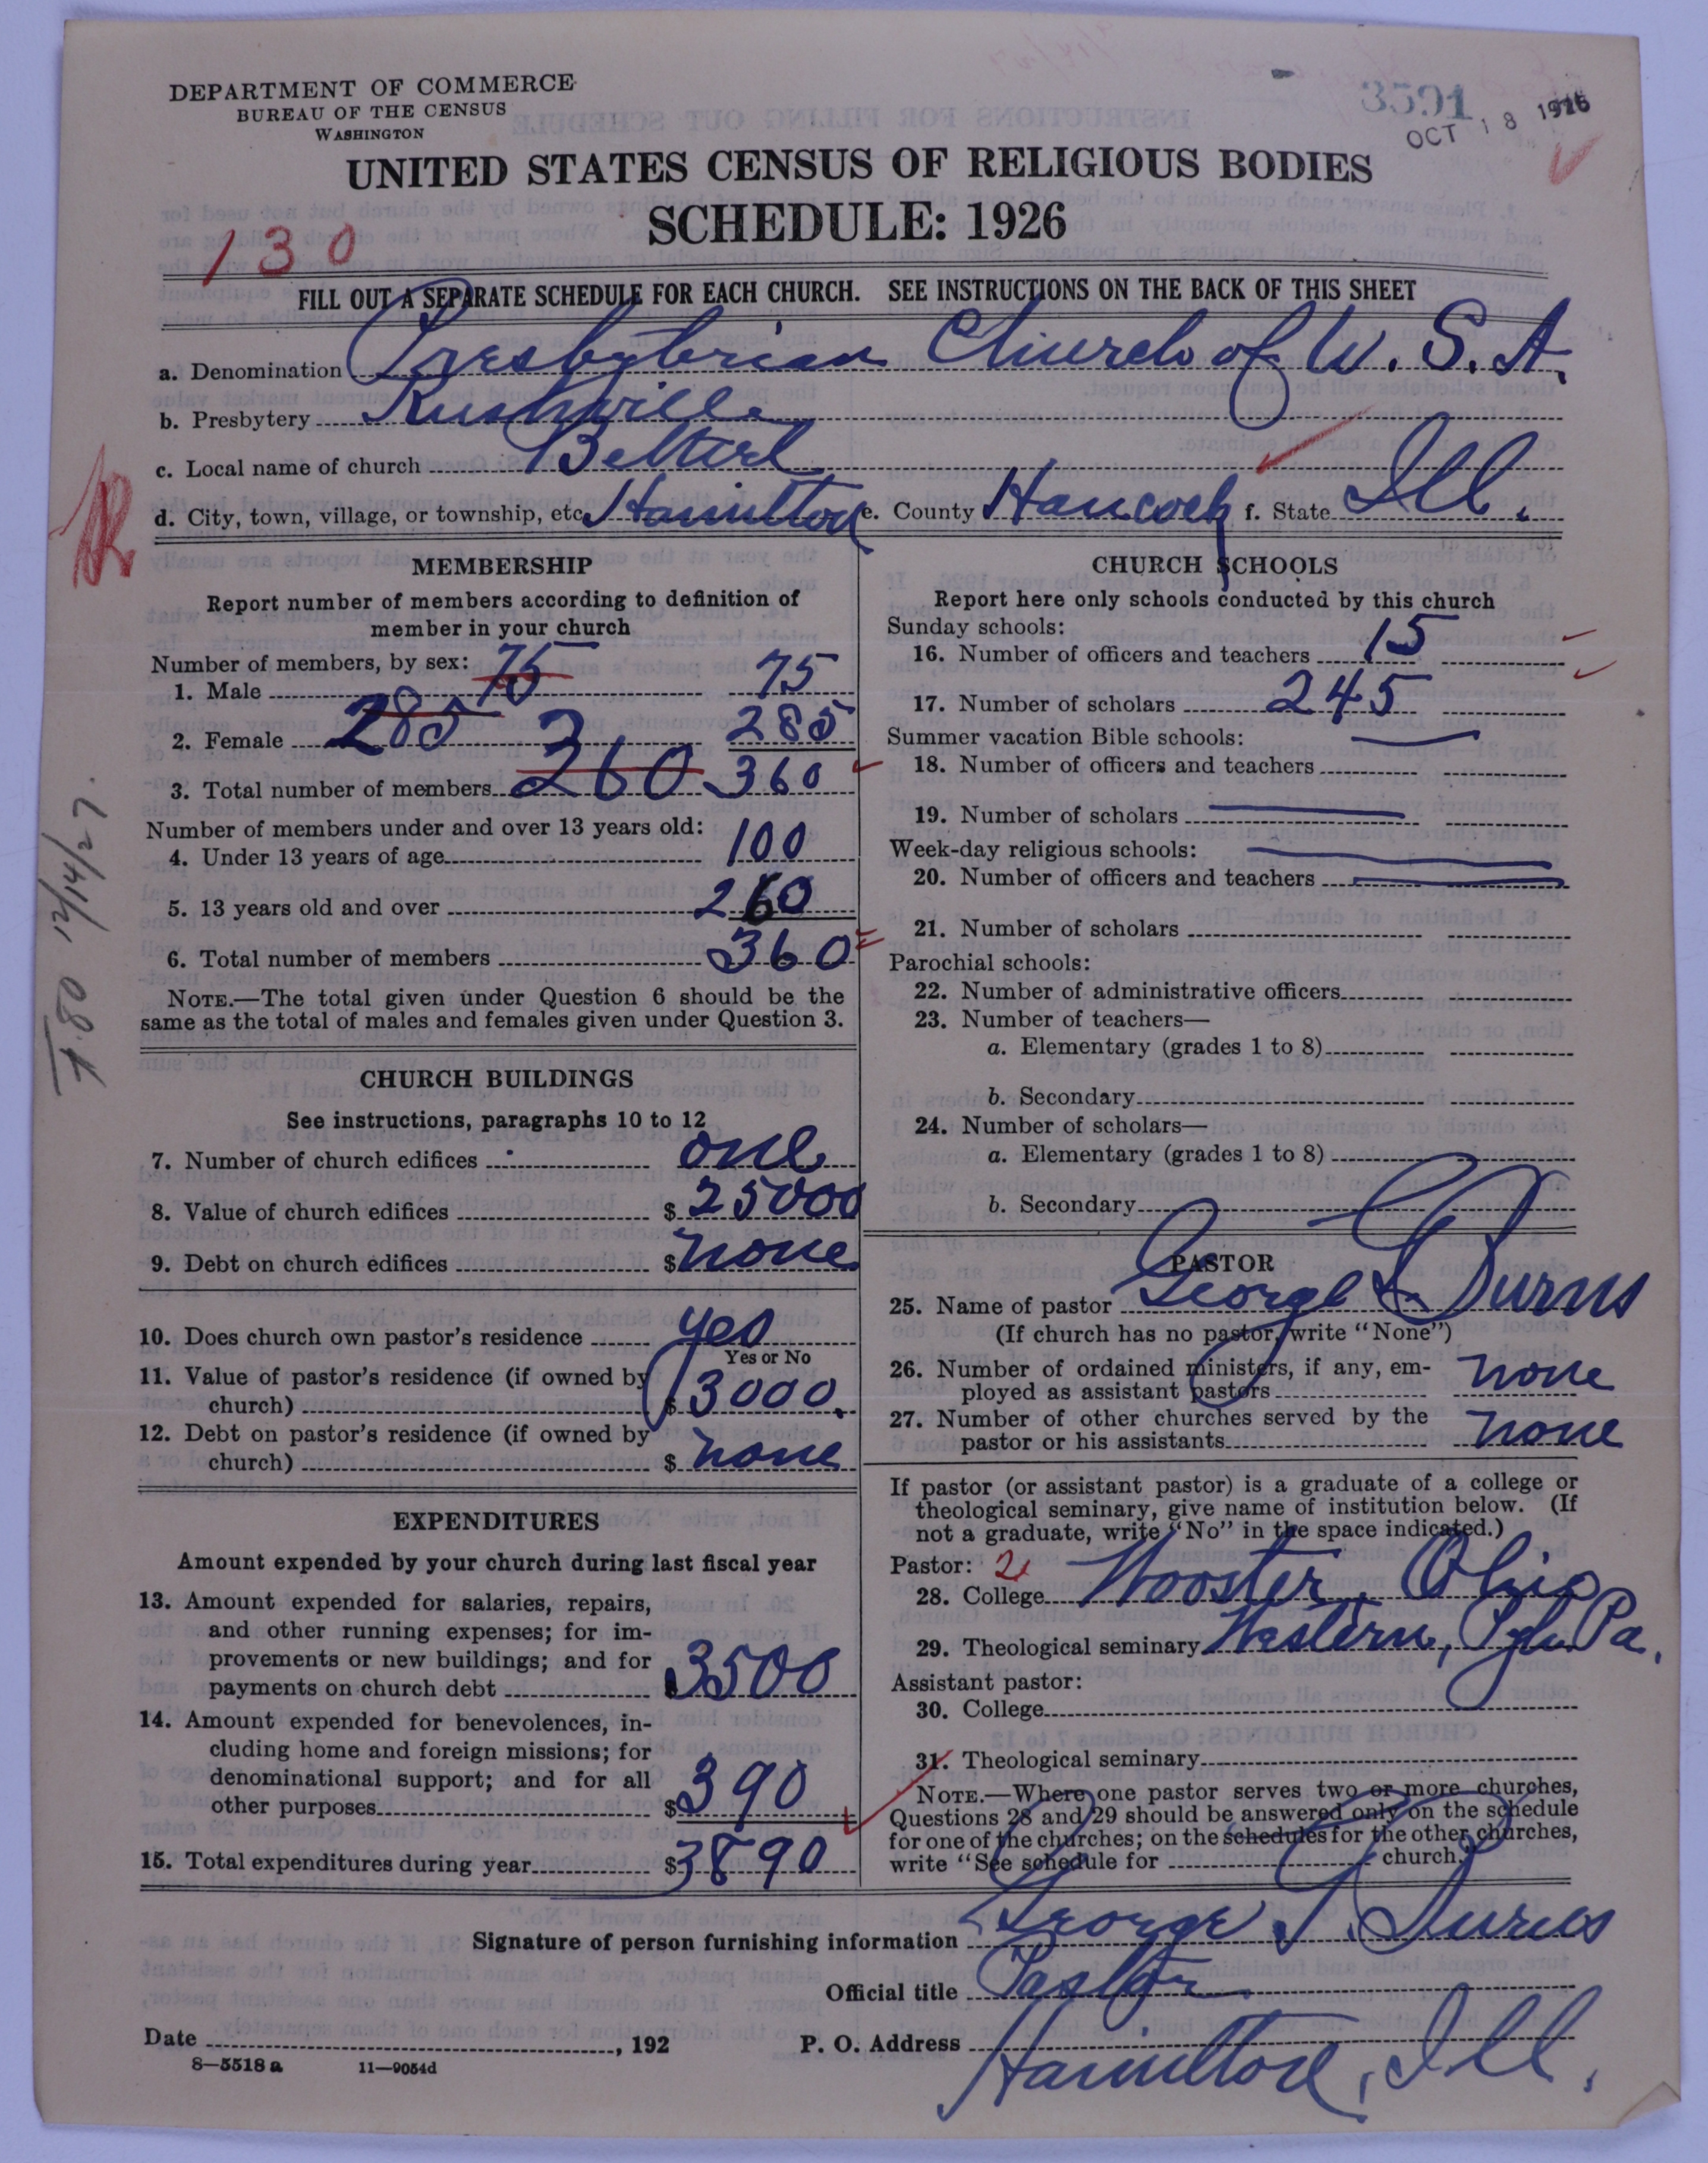 DEPARTMENT OF COMMERCE
BUREAU OF THE CENSUS
WASHINGTON
3591
OCT 18 1926
UNITED STATES CENSUS OF RELIGIOUS BODIES
SCHEDULE: 1926
130
FILL OUT A SEPARATE SCHEDULE FOR EACH CHURCH. SEE INSTRUCTIONS ON THE BACK OF THIS SHEET
a. Denomination Presbyterian Church of U. S. A.
b. Presbytery Rushville
c. Local name of church Bethel
d. City, town, village, or township, etc. Hamilton e. County Hancock f. State Ill.
MEMBERSHIP
Report number of members according to definition of
member in your church
Number of members, by sex:
1. Male 75 75
2. Female 285 285
3. Total number of members 360 360
Number of members under and over 13 years old:
4. Under 13 years of age 100
5. 13 years old and over 260
6. Total number of members 360
NOTE.—The total given under Question 6 should be the
same as the total of males and females given under Question 3.
CHURCH BUILDINGS
See instructions, paragraphs 10 to 12
7. Number of church edifices one
8. Value of church edifices $ 25000
9. Debt on church edifices $ none
10. Does church own pastor's residence yes
Yes or No
11. Value of pastor's residence (if owned by
church) $ 3000.
12. Debt on pastor's residence (if owned by
church) $ none
EXPENDITURES
Amount expended by your church during last fiscal year
13. Amount expended for salaries, repairs,
and other running expenses; for im-
provements or new buildings; and for
payments on church debt $ 3500
14. Amount expended for benevolences, in-
cluding home and foreign missions; for
denominational support; and for all
other purposes $ 390
15. Total expenditures during year $ 3890
CHURCH SCHOOLS
Report here only schools conducted by this church
Sunday schools:
16. Number of officers and teachers 15
17. Number of scholars 245
Summer vacation Bible schools:
18. Number of officers and teachers
19. Number of scholars
Week-day religious schools:
20. Number of officers and teachers
21. Number of scholars
Parochial schools:
22. Number of administrative officers
23. Number of teachers—
a. Elementary (grades 1 to 8)
b. Secondary
24. Number of scholars—
a. Elementary (grades 1 to 8)
b. Secondary
PASTOR
25. Name of pastor George Burns
(If church has no pastor, write "None")
26. Number of ordained ministers, if any, em-
ployed as assistant pastors none
27. Number of other churches served by the
pastor or his assistants none
If pastor (or assistant pastor) is a graduate of a college or
theological seminary, give name of institution below. (If
not a graduate, write "No" in the space indicated.)
Pastor: 2
28. College Wooster Ohio
29. Theological seminary Western, Pgh. Pa.
Assistant pastor:
30. College
31. Theological seminary
NOTE.—Where one pastor serves two or more churches,
Questions 28 and 29 should be answered only on the schedule
for one of the churches; on the schedules for the other churches,
write "See schedule for church."
Signature of person furnishing information George Burns
Official title Pastor
Date , 192 P. O. Address Hamilton, Ill.
8—5518 a 11—9054d
12/14/27.